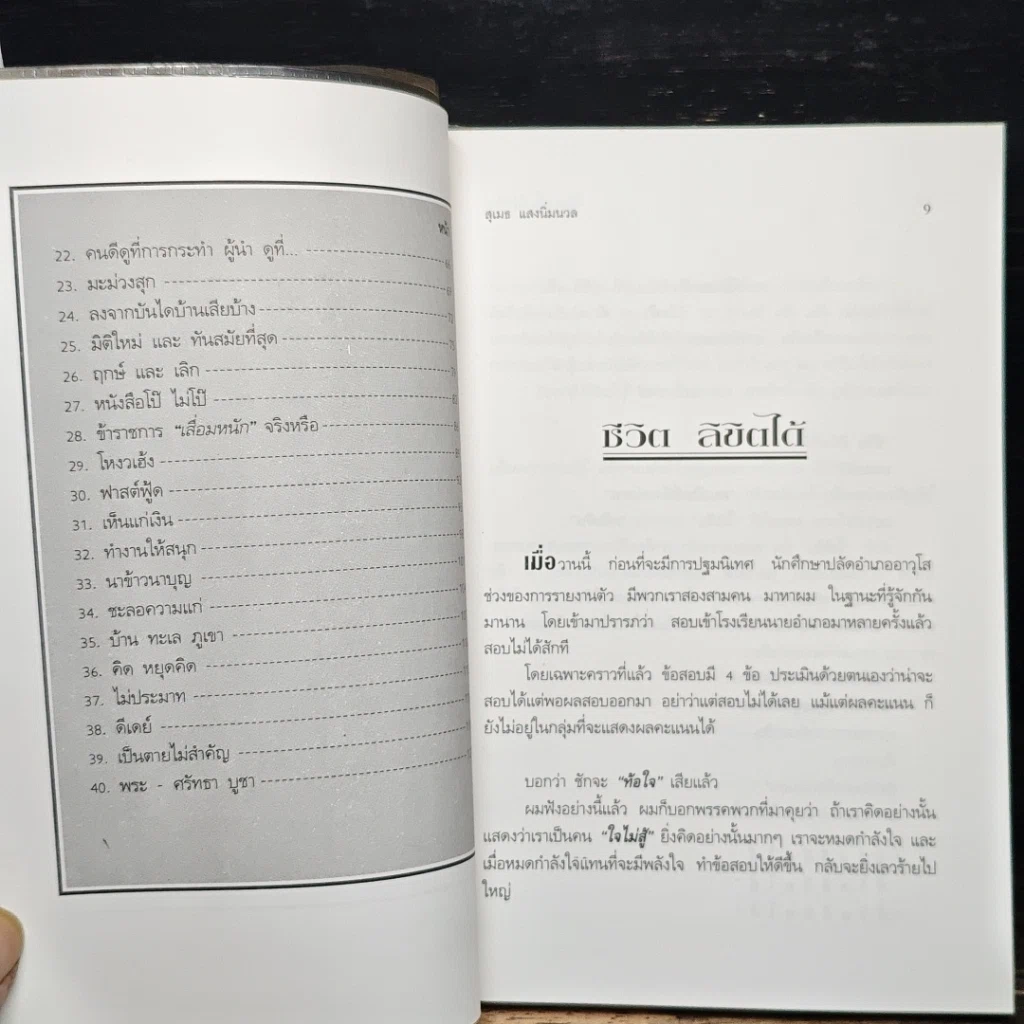 22. คนดีดูที่การกระทำ ผู้นำ ดูที่...
23. มะม่วงสุก
24. ลงจากบันไดบ้านเสียบ้าง
25. มิติใหม่ และ ทันสมัยที่สุด
26. ฤกษ์ และ เลิก
27. หนังสือโป๊ ไม่โป๊
28. ข้าราชการ “เสื่อมหนัก” จริงหรือ
29. โหงวเฮ้ง
30. ฟาสต์ฟู้ด
31. เห็นแก่เงิน
32. ทำงานให้สนุก
33. นาข้าวนาบุญ
34. ชะลอความแก่
35. บ้าน ทะเล ภูเขา
36. คิด หยุดคิด
37. ไม่ประมาท
38. ดีเดย์
39. เป็นตายไม่สำคัญ
40. พระ - ศรัทธา บูชา
สุเมธ แสงนิ่มนวล 9
ชีวิต ลิขิตได้
เมื่อวานนี้ ก่อนที่จะมีการปฐมนิเทศ นักศึกษาปลัดอำเภออาวุโส
ช่วงของการรายงานตัว มีพวกเราสองสามคน มาหาผม ในฐานะที่รู้จักกัน
มานาน โดยเข้ามาปรารภว่า สอบเข้าโรงเรียนนายอำเภอมาหลายครั้งแล้ว
สอบไม่ได้สักที
โดยเฉพาะคราวที่แล้ว ข้อสอบมี 4 ข้อ ประเมินด้วยตนเองว่าน่าจะ
สอบได้แต่พอผลสอบออกมา อย่าว่าแต่สอบไม่ได้เลย แม้แต่ผลคะแนน ก็
ยังไม่อยู่ในกลุ่มที่จะแสดงผลคะแนนได้
บอกว่า ชักจะ “ท้อใจ” เสียแล้ว
ผมฟังอย่างนี้แล้ว ผมก็บอกพรรคพวกที่มาคุยว่า ถ้าเราคิดอย่างนั้น
แสดงว่าเราเป็นคน “ใจไม่สู้” ยิ่งคิดอย่างนั้นมากๆ เราจะหมดกำลังใจ และ
เมื่อหมดกำลังใจแทนที่จะมีพลังใจ ทำข้อสอบให้ดีขึ้น กลับจะยิ่งเลวร้ายไป
ใหญ่